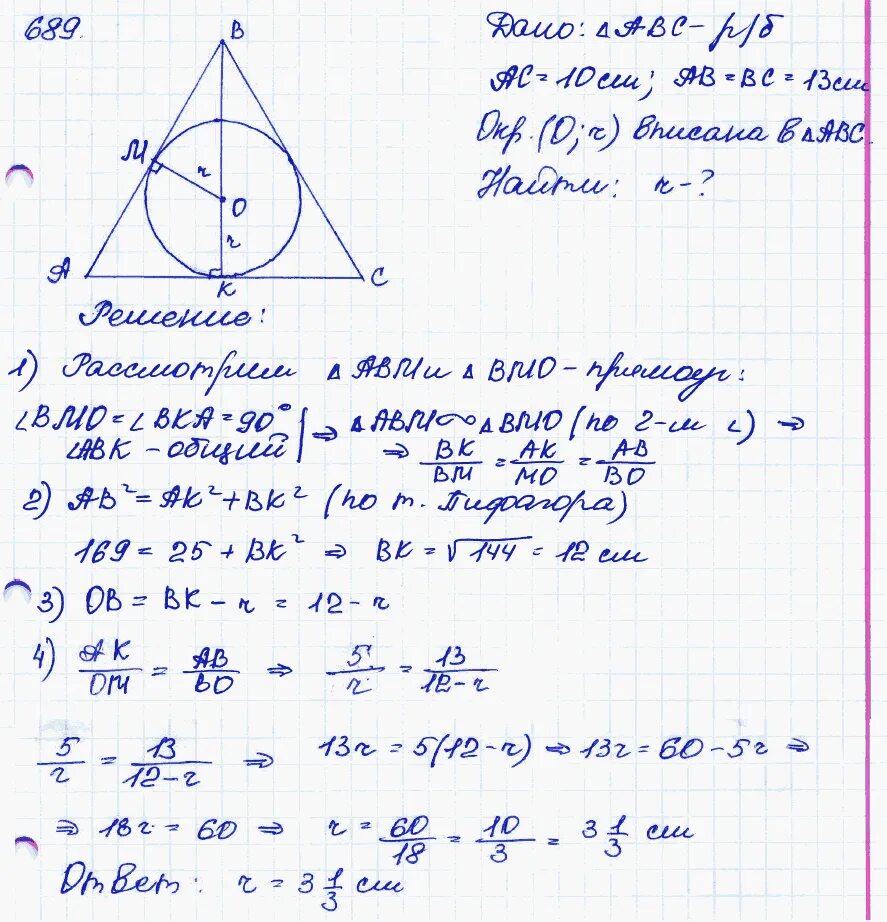 689.
B
M
r
O
r
A
K
C
Дано: △ABC – р/б
AC = 10 см; AB = BC = 13 см
Окр. (O; r) вписана в △ABC.
Найти: r – ?
Решение:
1) Рассмотрим △ ABM и △ BMO – прямоуг:
∠BMO = ∠BKA = 90° | ⇒ △ABM ∾ △BMO (по 2-м ∠) ⇒
∠ABK – общий | ⇒ BK/BM = AK/MO = AB/BO
2) AB² = AK² + BK² (по т. Пифагора)
169 = 25 + BK² ⇒ BK = √144 = 12 см
3) OB = BK – r = 12 – r
4) AK/OM = AB/BO ⇒ 5/r = 13/12–r
5/r = 13/12–r ⇒ 13r = 5(12–r) ⇒ 13r = 60 – 5r ⇒
⇒ 18r = 60 ⇒ r = 60/18 = 10/3 = 3 1/3 см
Ответ: r = 3 1/3 см